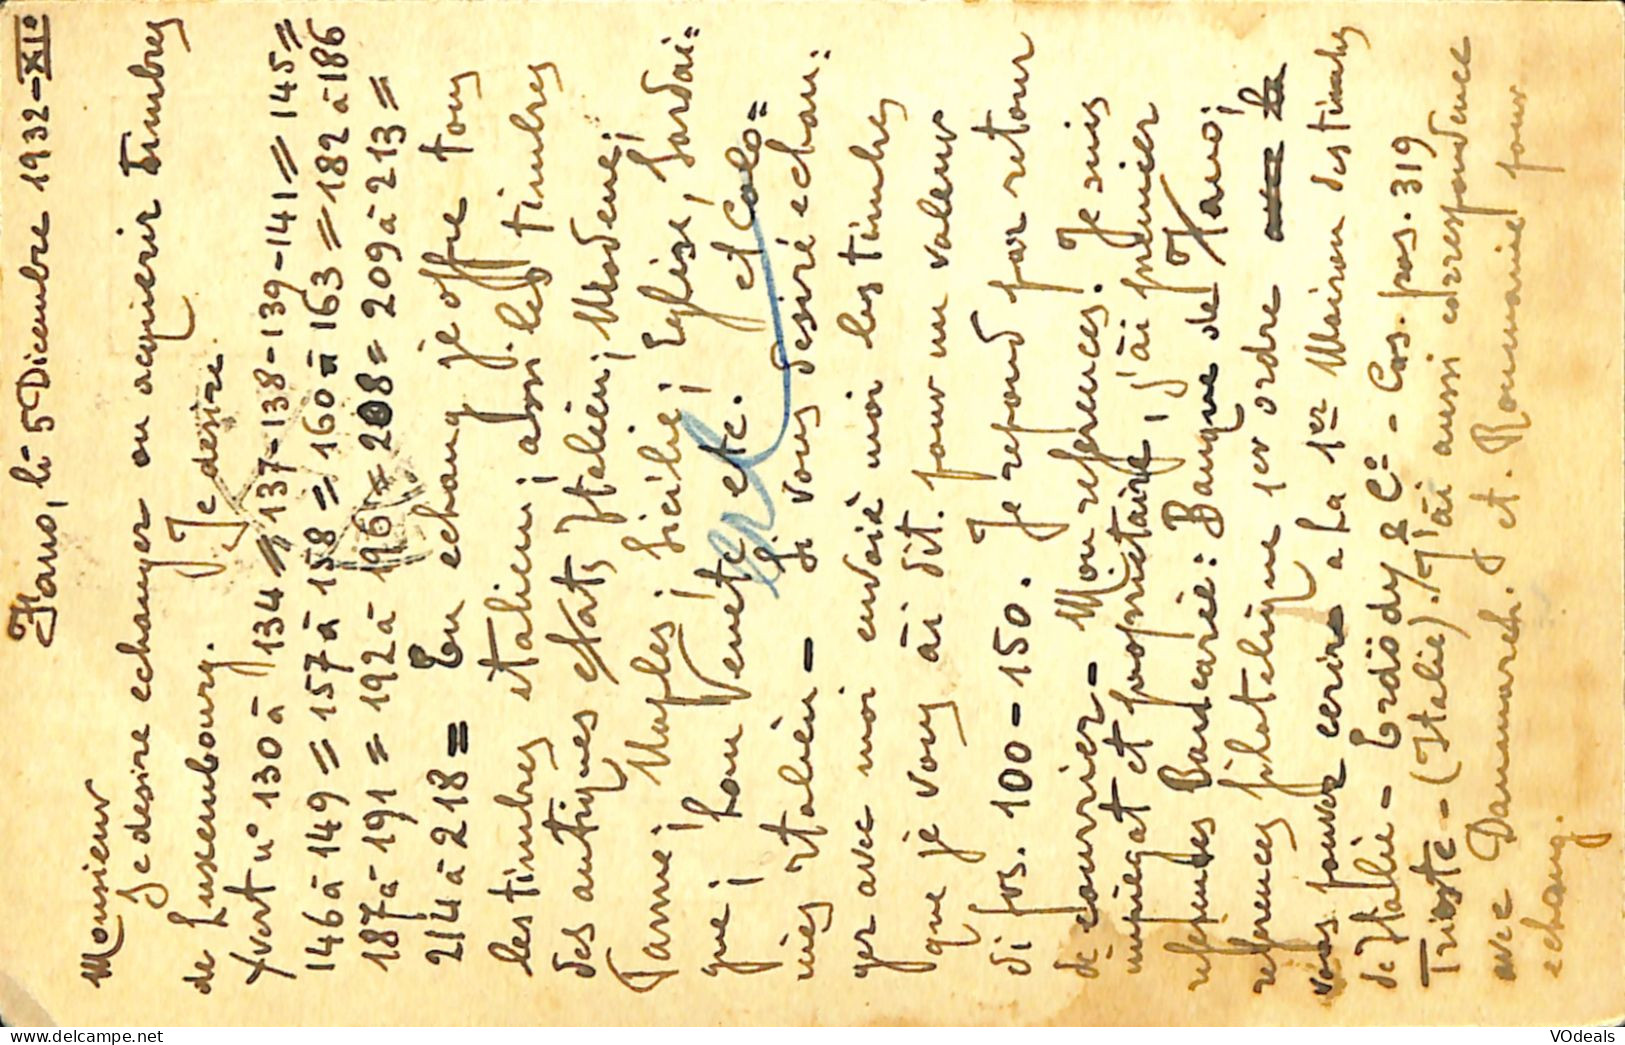 Hano, li 5 Dicembre 1932-XI°
Monsieur
Je desire echanger ou acquerir timbres
de Luxembourg. Je desire
Yvert n° 130 à 134 = 137-138-139-141 = 145 =
146 à 149 = 157 à 158 = 160 à 163 = 182 à 186
187 à 191 = 192 à 196 = 208 = 209 à 213 =
214 à 218 = En echang je offre tous
les timbres italieni, ansi les timbres
des antiques etats Italien; Modene;
Parme; Naples; Sicilie; Eglise, Sardai=
gne; Lom Venete etc. et Colo=
nies Italien - Si vous desiré echan:
ger avec moi envoié moi les timbres
que je vous ài dit. pour un valeur
di frs. 100-150. Je repond par retour
de courrier - Mon references. Je suis
impiegat et propriétaire, j'ài premier
referentes Bancariè: Banque de Hano;
references filatelique 1er ordre
vous pouvez ecrire a La 1er Maison des timbres
de Italie - Erdödy & C° - Cas. pos. 319
Trieste - (Italie). J'ài aussi correspondence
avec Danemarch. et Roumanie pour
echang.
VOdeals